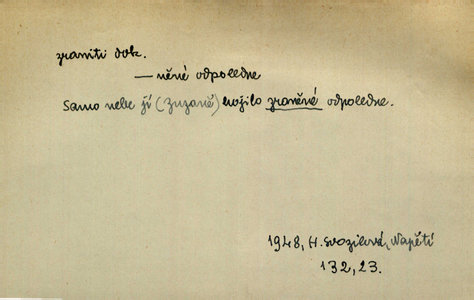 zraniti dok.
— něné odpoledne
Samo nebe jí (Zuzaně) hojilo zraněné odpoledne.
1948, H. Svozilová, Napětí
132, 23.